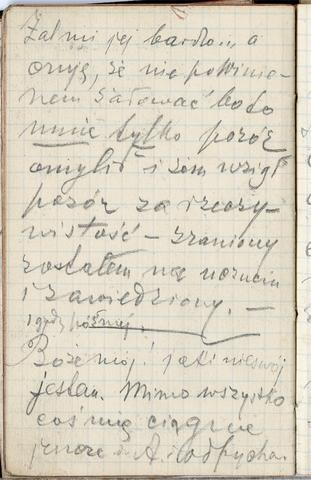 Żal mi jej bardzo... a
czuję, że nie powinie-
nem żałować bo to
mnie tylko pozór
omylił i sam wziął
pozór za rzeczy-
wistość – zraniony
zostałem na uczuciu
i zawiedziony. —
Boże mój! jaki nieswój
jestem. Mimo wszystko
coś mię ciągnie
jeszcze do A. i odpycha.